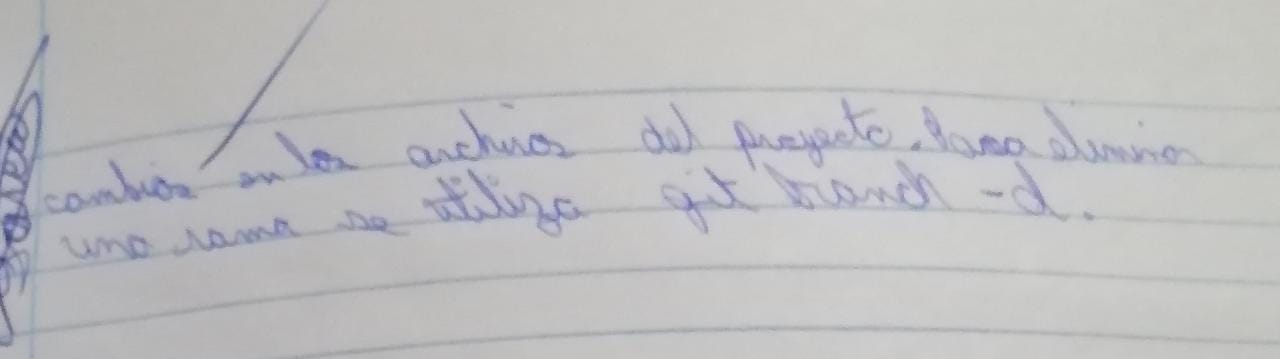 cambios en los archivos del proyecto. Para eliminar
una rama se utiliza git branch -d.